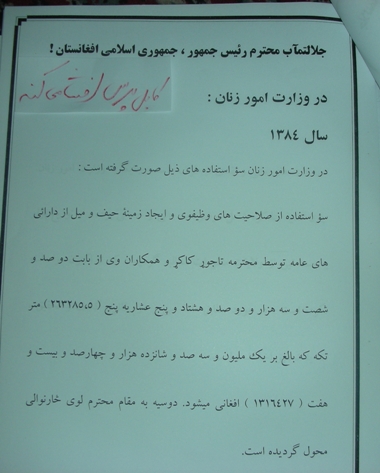 جلالتمآب محترم رئیس جمهور ، جمهوری اسلامی افغانستان !
کابل پرس افشا می کند
در وزارت امور زنان :
سال ١٣٨٤
در وزارت امور زنان سؤ استفاده های ذیل صورت گرفته است :
سؤ استفاده از صلاحیت های وظیفوی و ایجاد زمینهٔ حیف و میل از دارائی
های عامه توسط محترمه تاجور کاکړ و همکاران وی از بابت دو صد و
شصت و سه هزار و دو صد و هشتاد و پنج عشاریه پنج ( ٢٦٣٢٨٥،٥ ) متر
تکه که بالغ بر یک ملیون و سه صد و شانزده هزار و چهارصد و بیست و
هفت ( ١٣١٦٤٢٧ ) افغانی میشود. دوسیه به مقام محترم لوی خارنوالی
محول گردیده است.